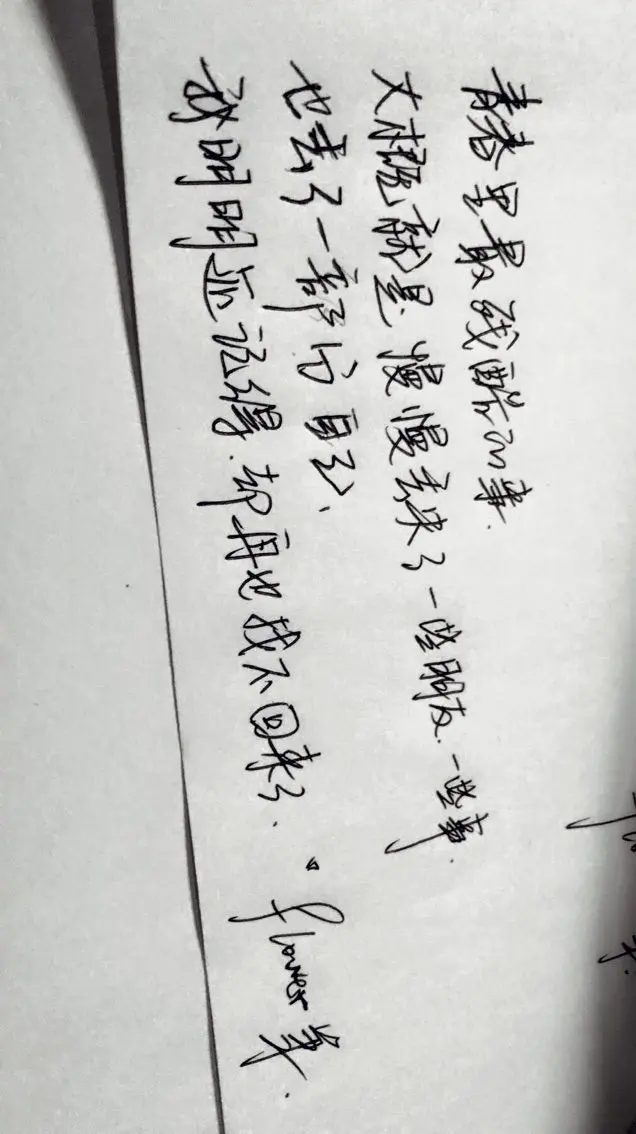 青春里最残酷的事.
大概就是慢慢丢失了一些朋友.一些事.
也丢了一部分自己.
我明明还记得.却再也找不回来了.
flower 笔.